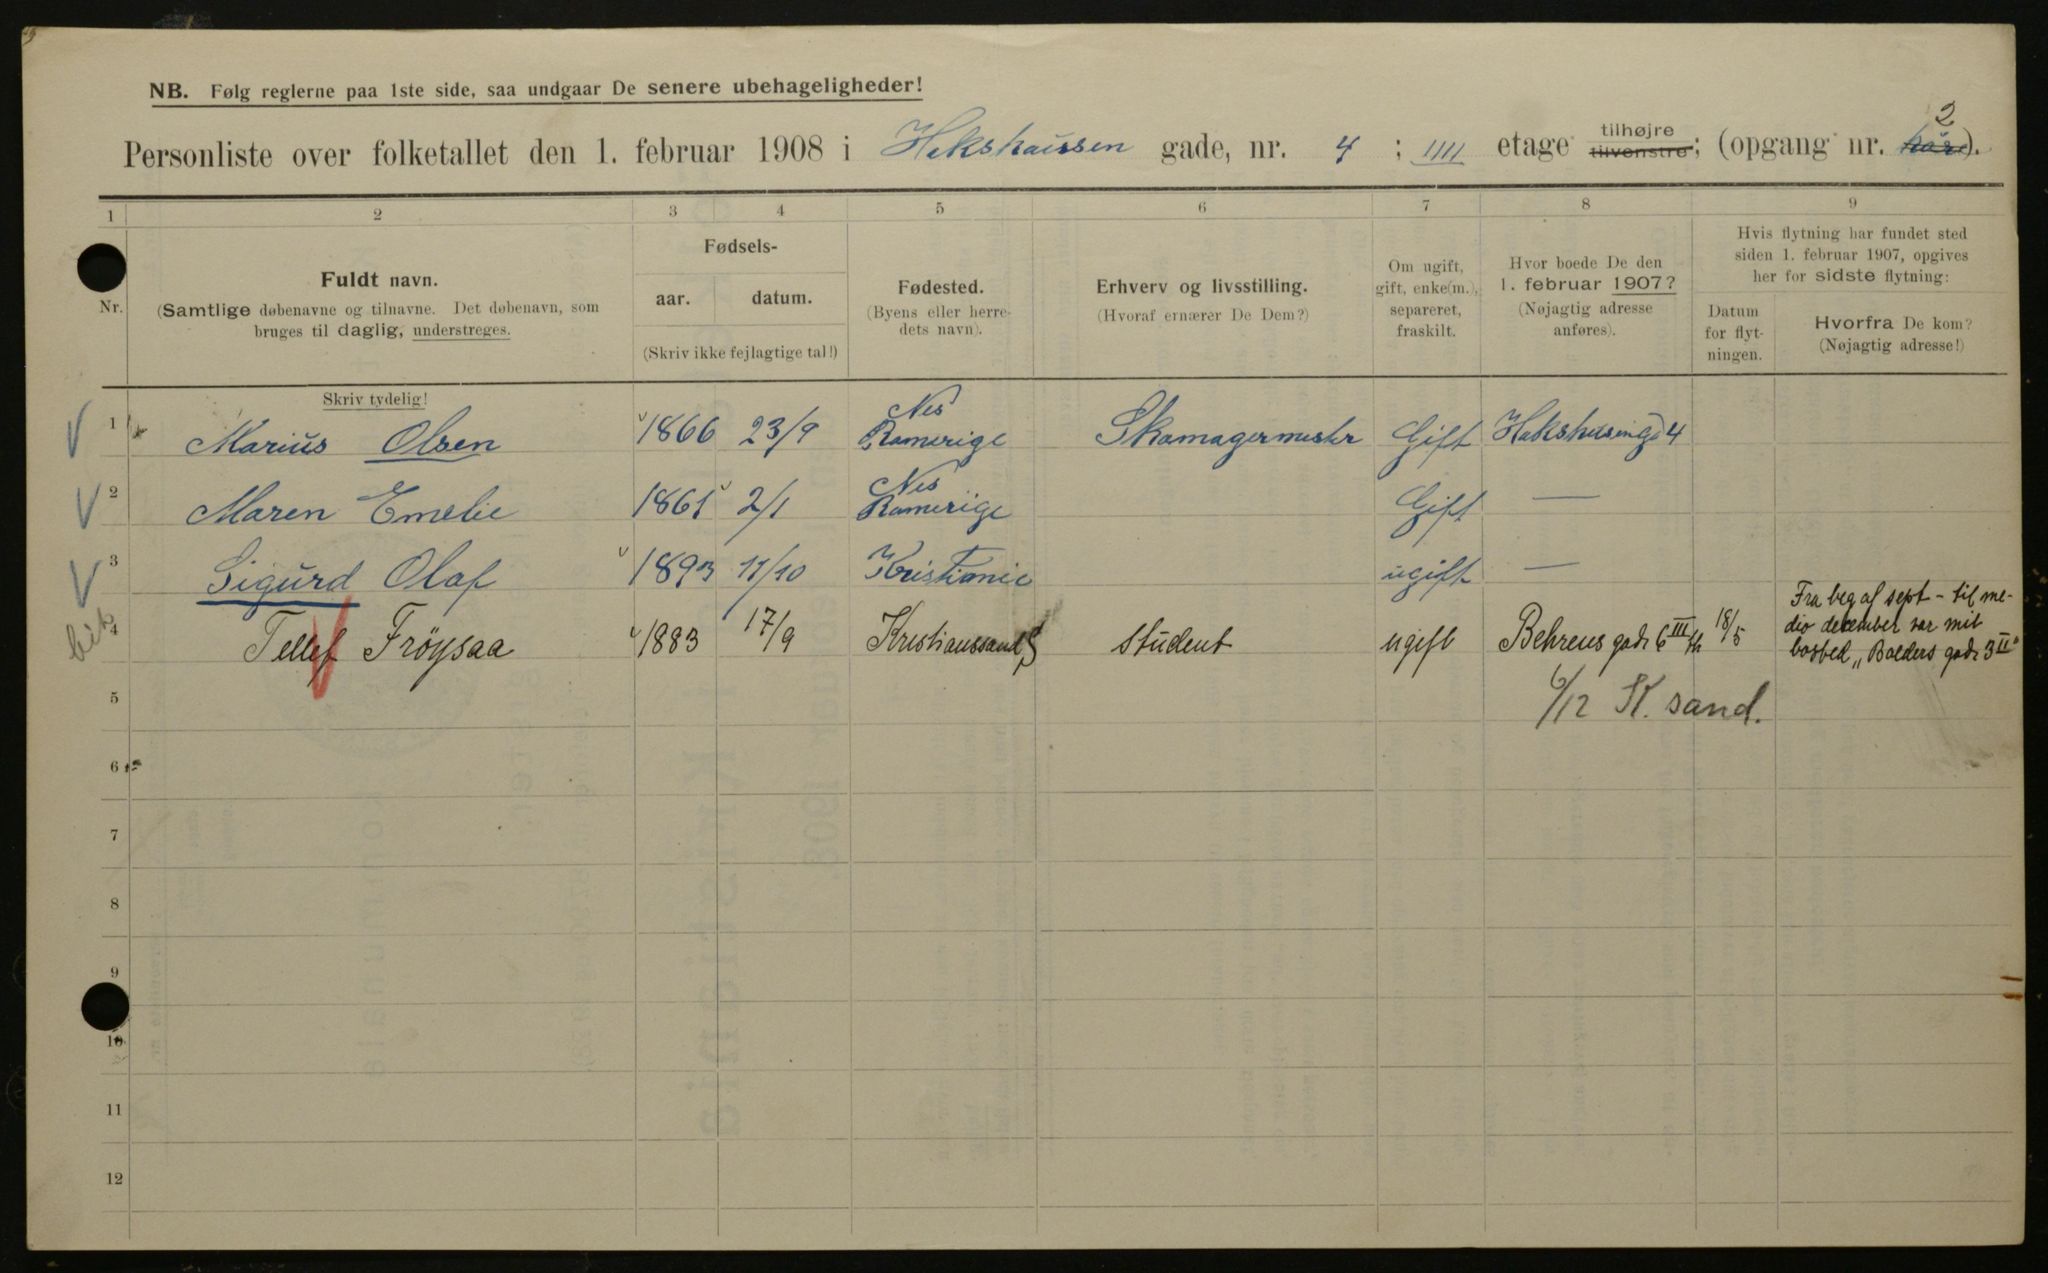 NB. Følg reglerne paa 1ste side, saa undgaar De senere ubehageligheder!
Personliste over folketallet den 1. februar 1908 i Hekshaussen gade, nr. 4 ; IIII etage tilhøjre tilvenstre; (opgang nr. 2).
1 2 3 4 5 6 7 8 9
Nr.
Fuldt navn.
(Samtlige døbenavne og tilnavne. Det døbenavn, som
bruges til daglig, understreges.
Skriv tydelig!
Fødsels-
aar. datum.
(Skriv ikke fejlagtige tal!)
Fødested.
(Byens eller herre-
dets navn).
Erhverv og livsstilling.
(Hvoraf ernærer De Dem?)
Om ugift,
gift, enke(m.),
separeret,
fraskilt.
Hvor boede De den
1. februar 1907?
(Nøjagtig adresse
anføres).
Hvis flytning har fundet sted
siden 1. februar 1907, opgives
her for sidste flytning:
Datum
for flyt-
ningen.
Hvorfra De kom?
(Nøjagtig adresse!)
1 Marius Olsen 1866 23/9 Nes Romerige Skomagermestr Gift Hekshusengd 4
2 Maren Emelie 1861 2/1 Nes Romerige Gift —
3 Sigurd Olaf 1893 11/10 Kristiania ugift —
4 Tellef Frøysaa 1883 17/9 Kristianssand S student ugift Behrens gade 6 III th 18/5
Fra beg af sept - til me-
dio december var mit
bosted „Balders gade 3 II"
5 6/12 K. sand.
6
7
8
9
10
11
12